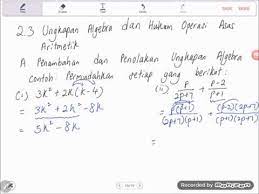 2.3 Ungkapan Algebra dan Hukum Operasi Asas
Aritmetik
A. Penambahan dan Penolakan Ungkapan Algebra
Contoh: Permudahkan setiap yang berikut:
(i) 3k² + 2k(k-4)
= 3k² + 2k² - 8k
= 5k² - 8k
(ii) p/(2p+7) + (p-2)/(p+1)
= p(p+1)/((2p+7)(p+1)) + (p-2)(2p+7)/((2p+7)(p+1))
=
Recorded by